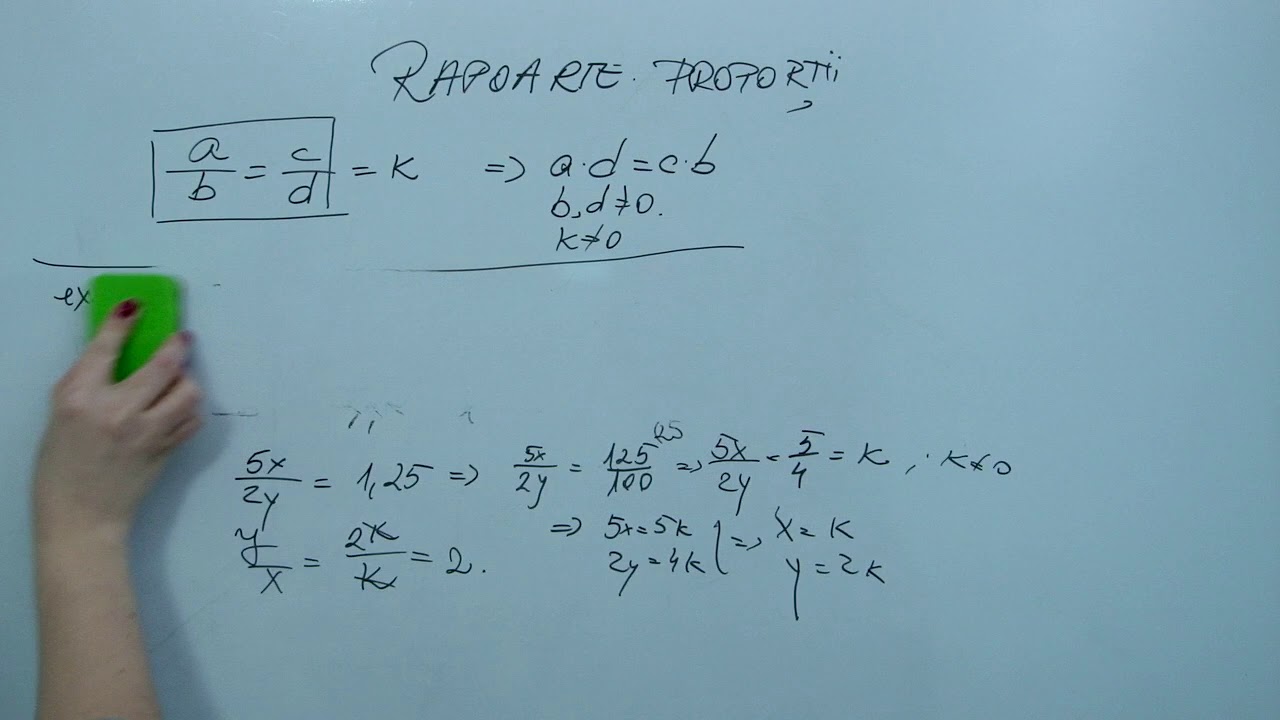 RAPOARTE. PROPORȚII
a/b = c/d = K => a·d = c·b
b, d ≠ 0.
K ≠ 0
ex
5x/2y = 1,25 => 5x/2y = 125/100 (25 => 5x/2y = 5/4 = K, K ≠ 0
y/x = 2K/K = 2.
=> 5x = 5K | => x = K
2y = 4K | y = 2K